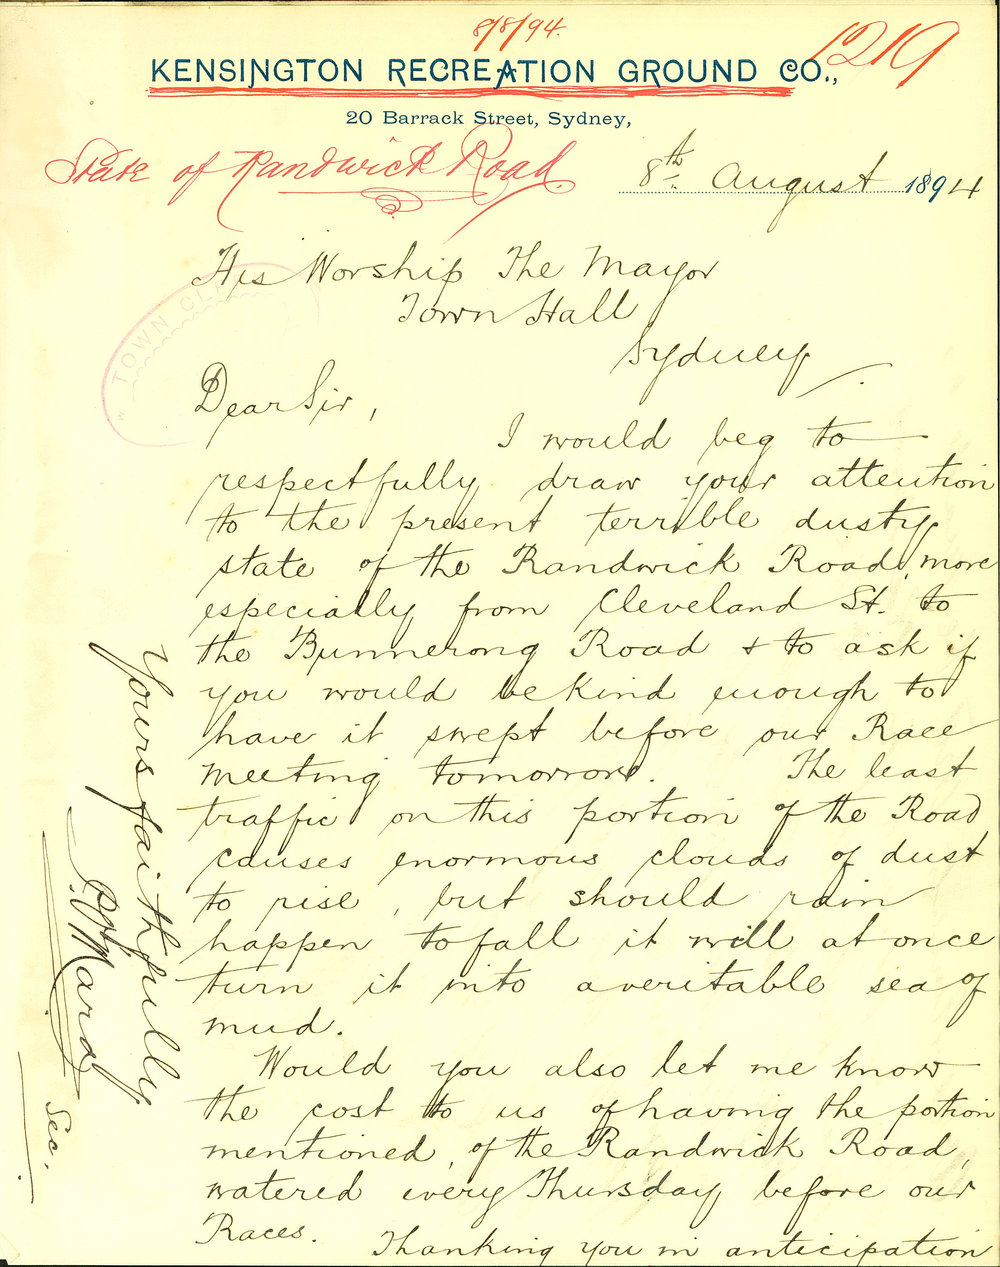 8/8/94.
1219
KENSINGTON RECREATION GROUND CO.,
20 Barrack Street, Sydney,
State of Randwick Road.
8th August 1894
His Worship The Mayor
Town Hall
Sydney.
TOWN CL
Dear Sir,
I would beg to
respectfully draw your attention
to the present terrible dusty
state of the Randwick Road, more
especially from Cleveland St. to
the Bunnerong Road & to ask if
you would be kind enough to
have it swept before our Race
meeting tomorrow. The least
traffic on this portion of the Road
causes enormous clouds of dust
to rise, but should rain
happen to fall it will at once
turn it into a veritable sea of
mud.
Would you also let me know
the cost to us of having the portion
mentioned, of the Randwick Road,
watered every Thursday before our
Races. Thanking you in anticipation
Yours faithfully
Sec.